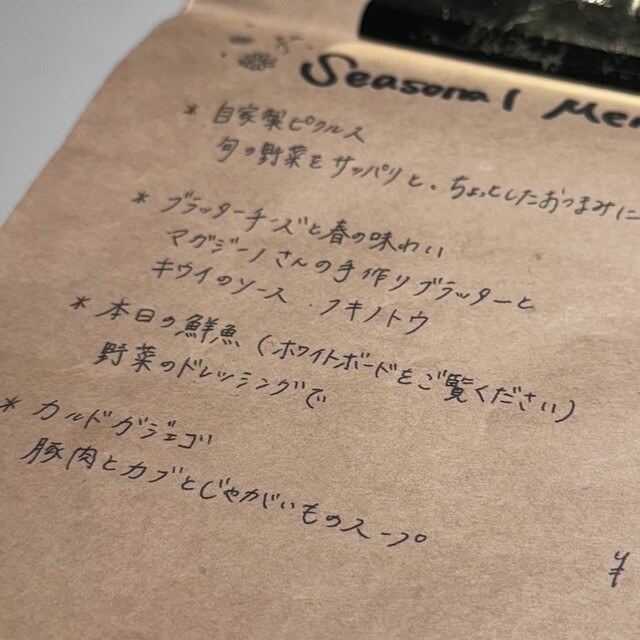 Seasonal Men
* 自家製ピクルス
旬の野菜をサッパリと、ちょっとしたおつまみに
* ブラッターチーズと春の味わい
マガジーノさんの手作りブラッターと
キウイのソース フキノトウ
* 本日の鮮魚 (ホワイトボードをご覧ください)
野菜のドレッシングで
* カルドガジェゴ
豚肉とカブとじゃがいものスープ
¥